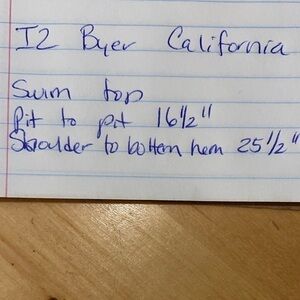 I2 Byer California
Swim top
Pit to pit 16 1/2"
Shoulder to bottem hem 25 1/2"